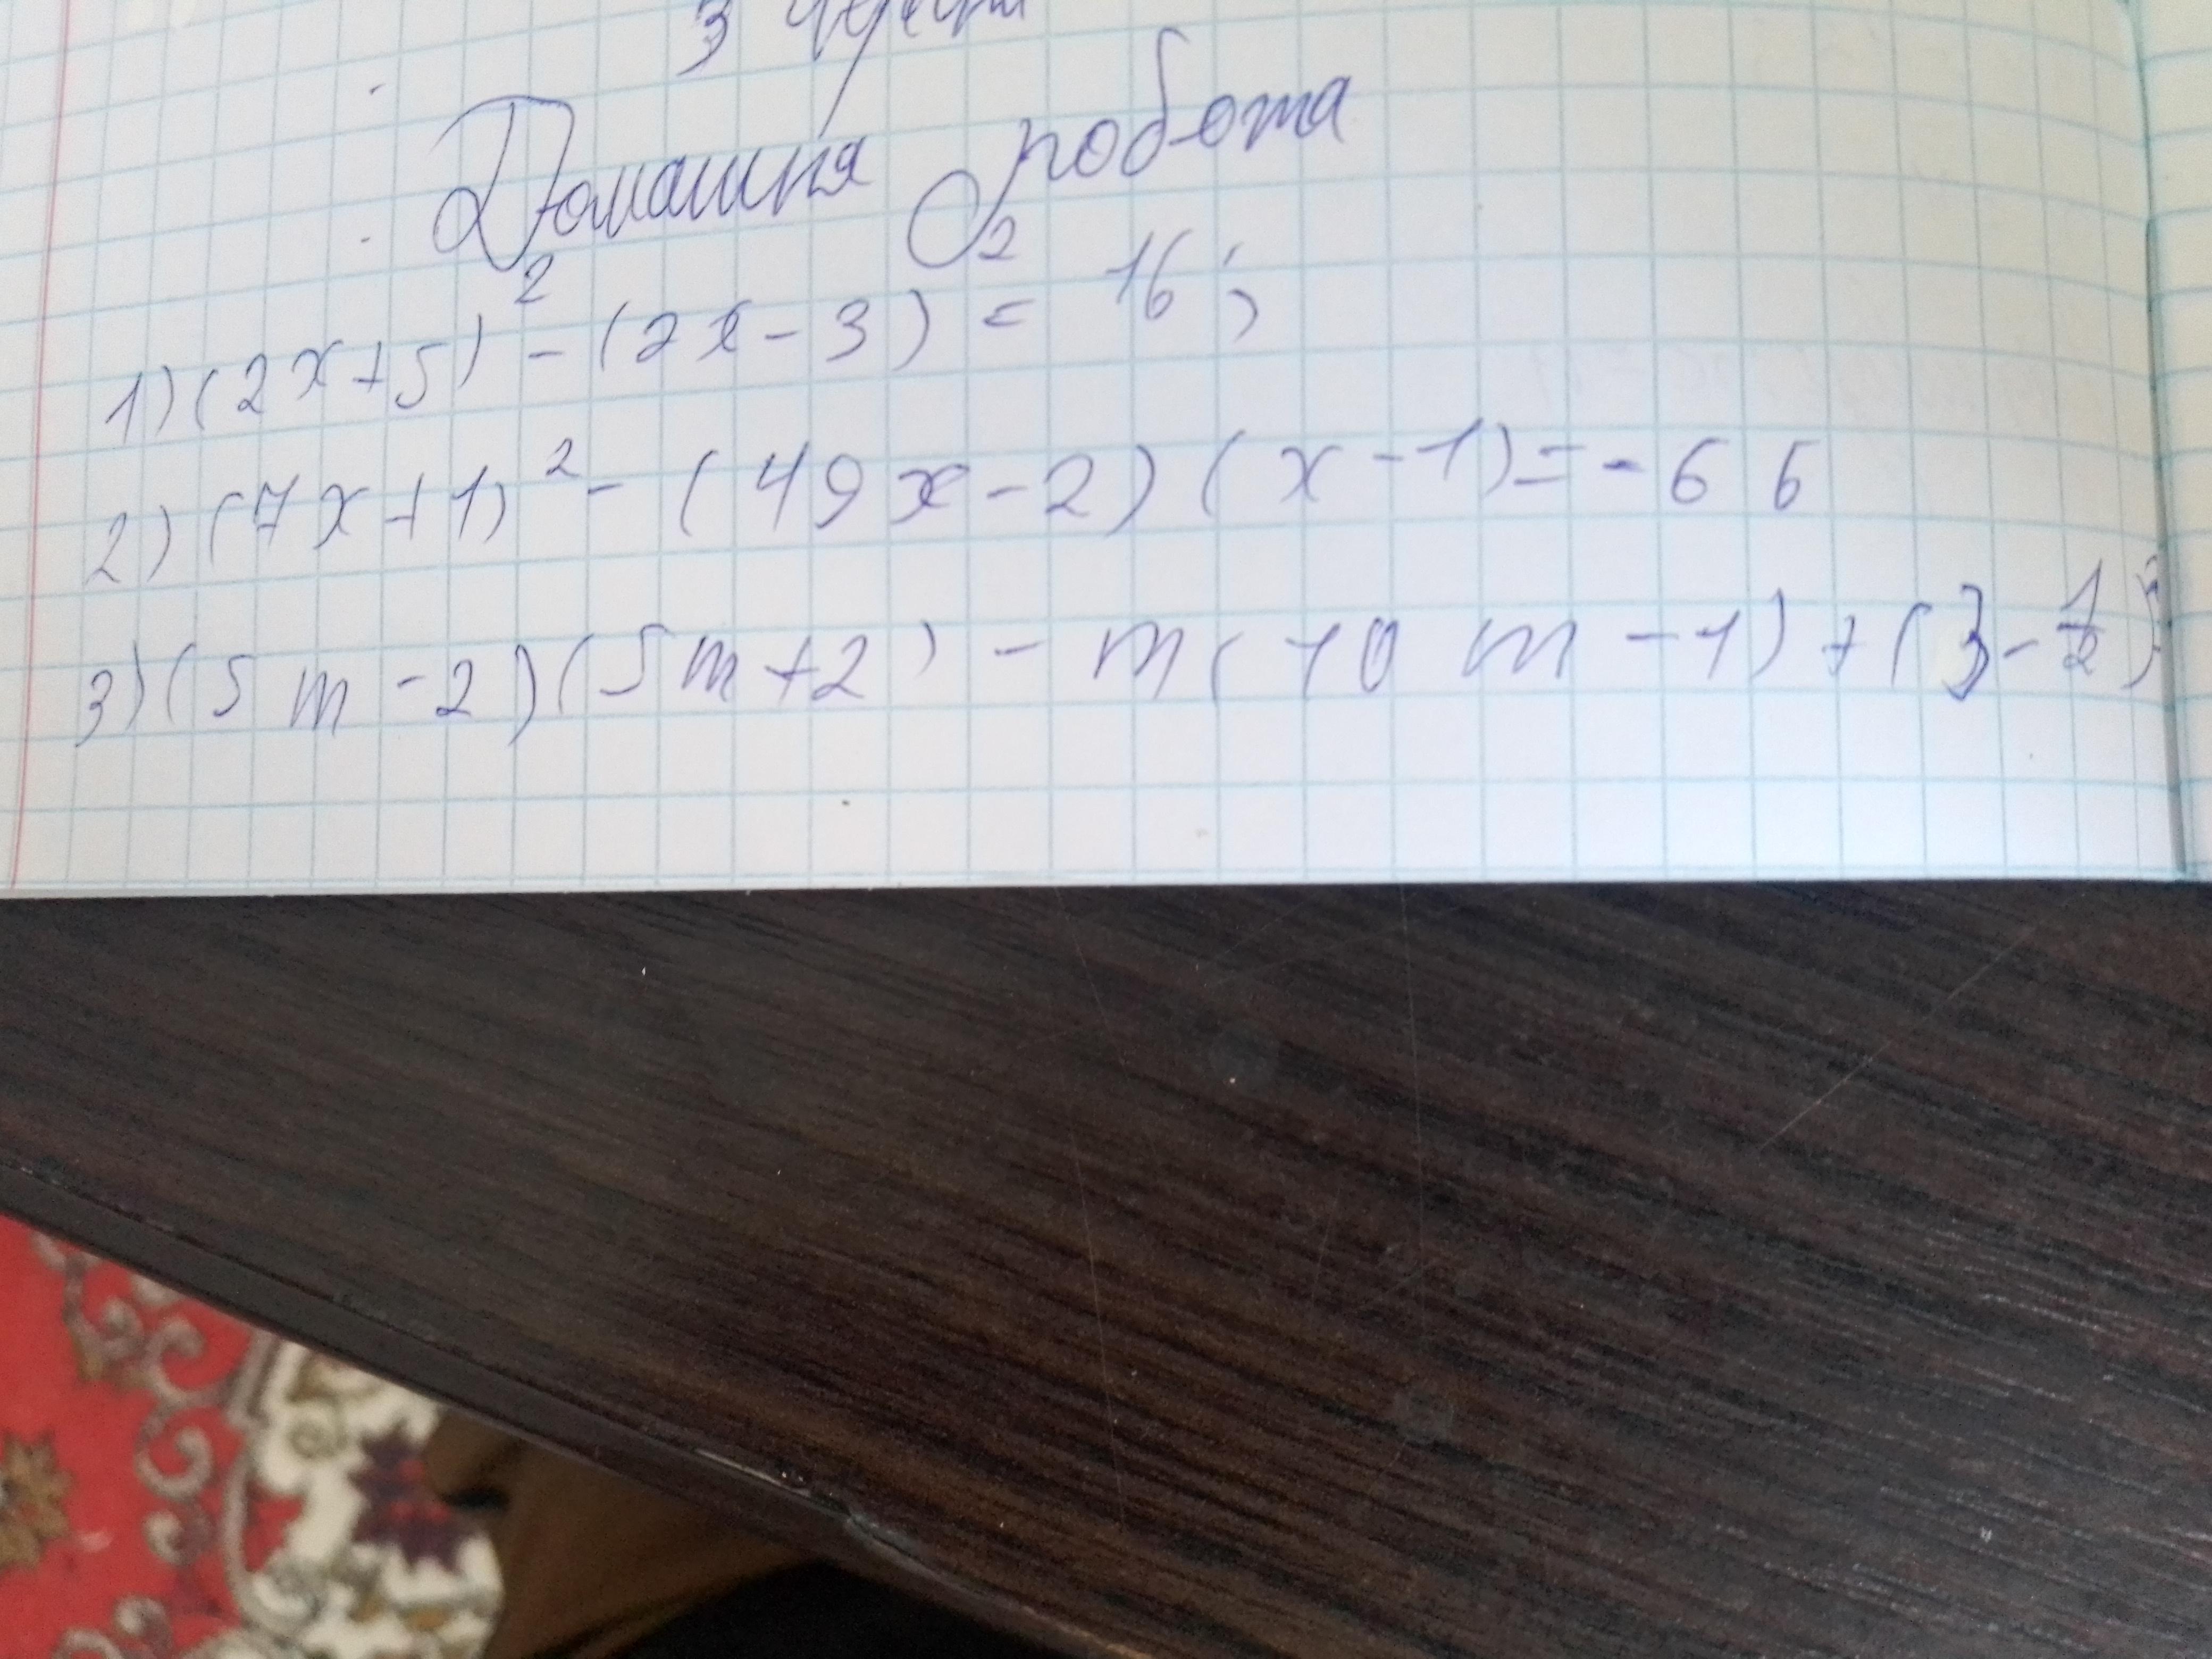 3 червня
Домашня робота
1) (2x+5)² - (2x-3)² = 16;
2) (7x+1)² - (49x-2)(x-1) = -66
3) (5m-2)(5m+2) - m(10m-1) + (3-1/2)²